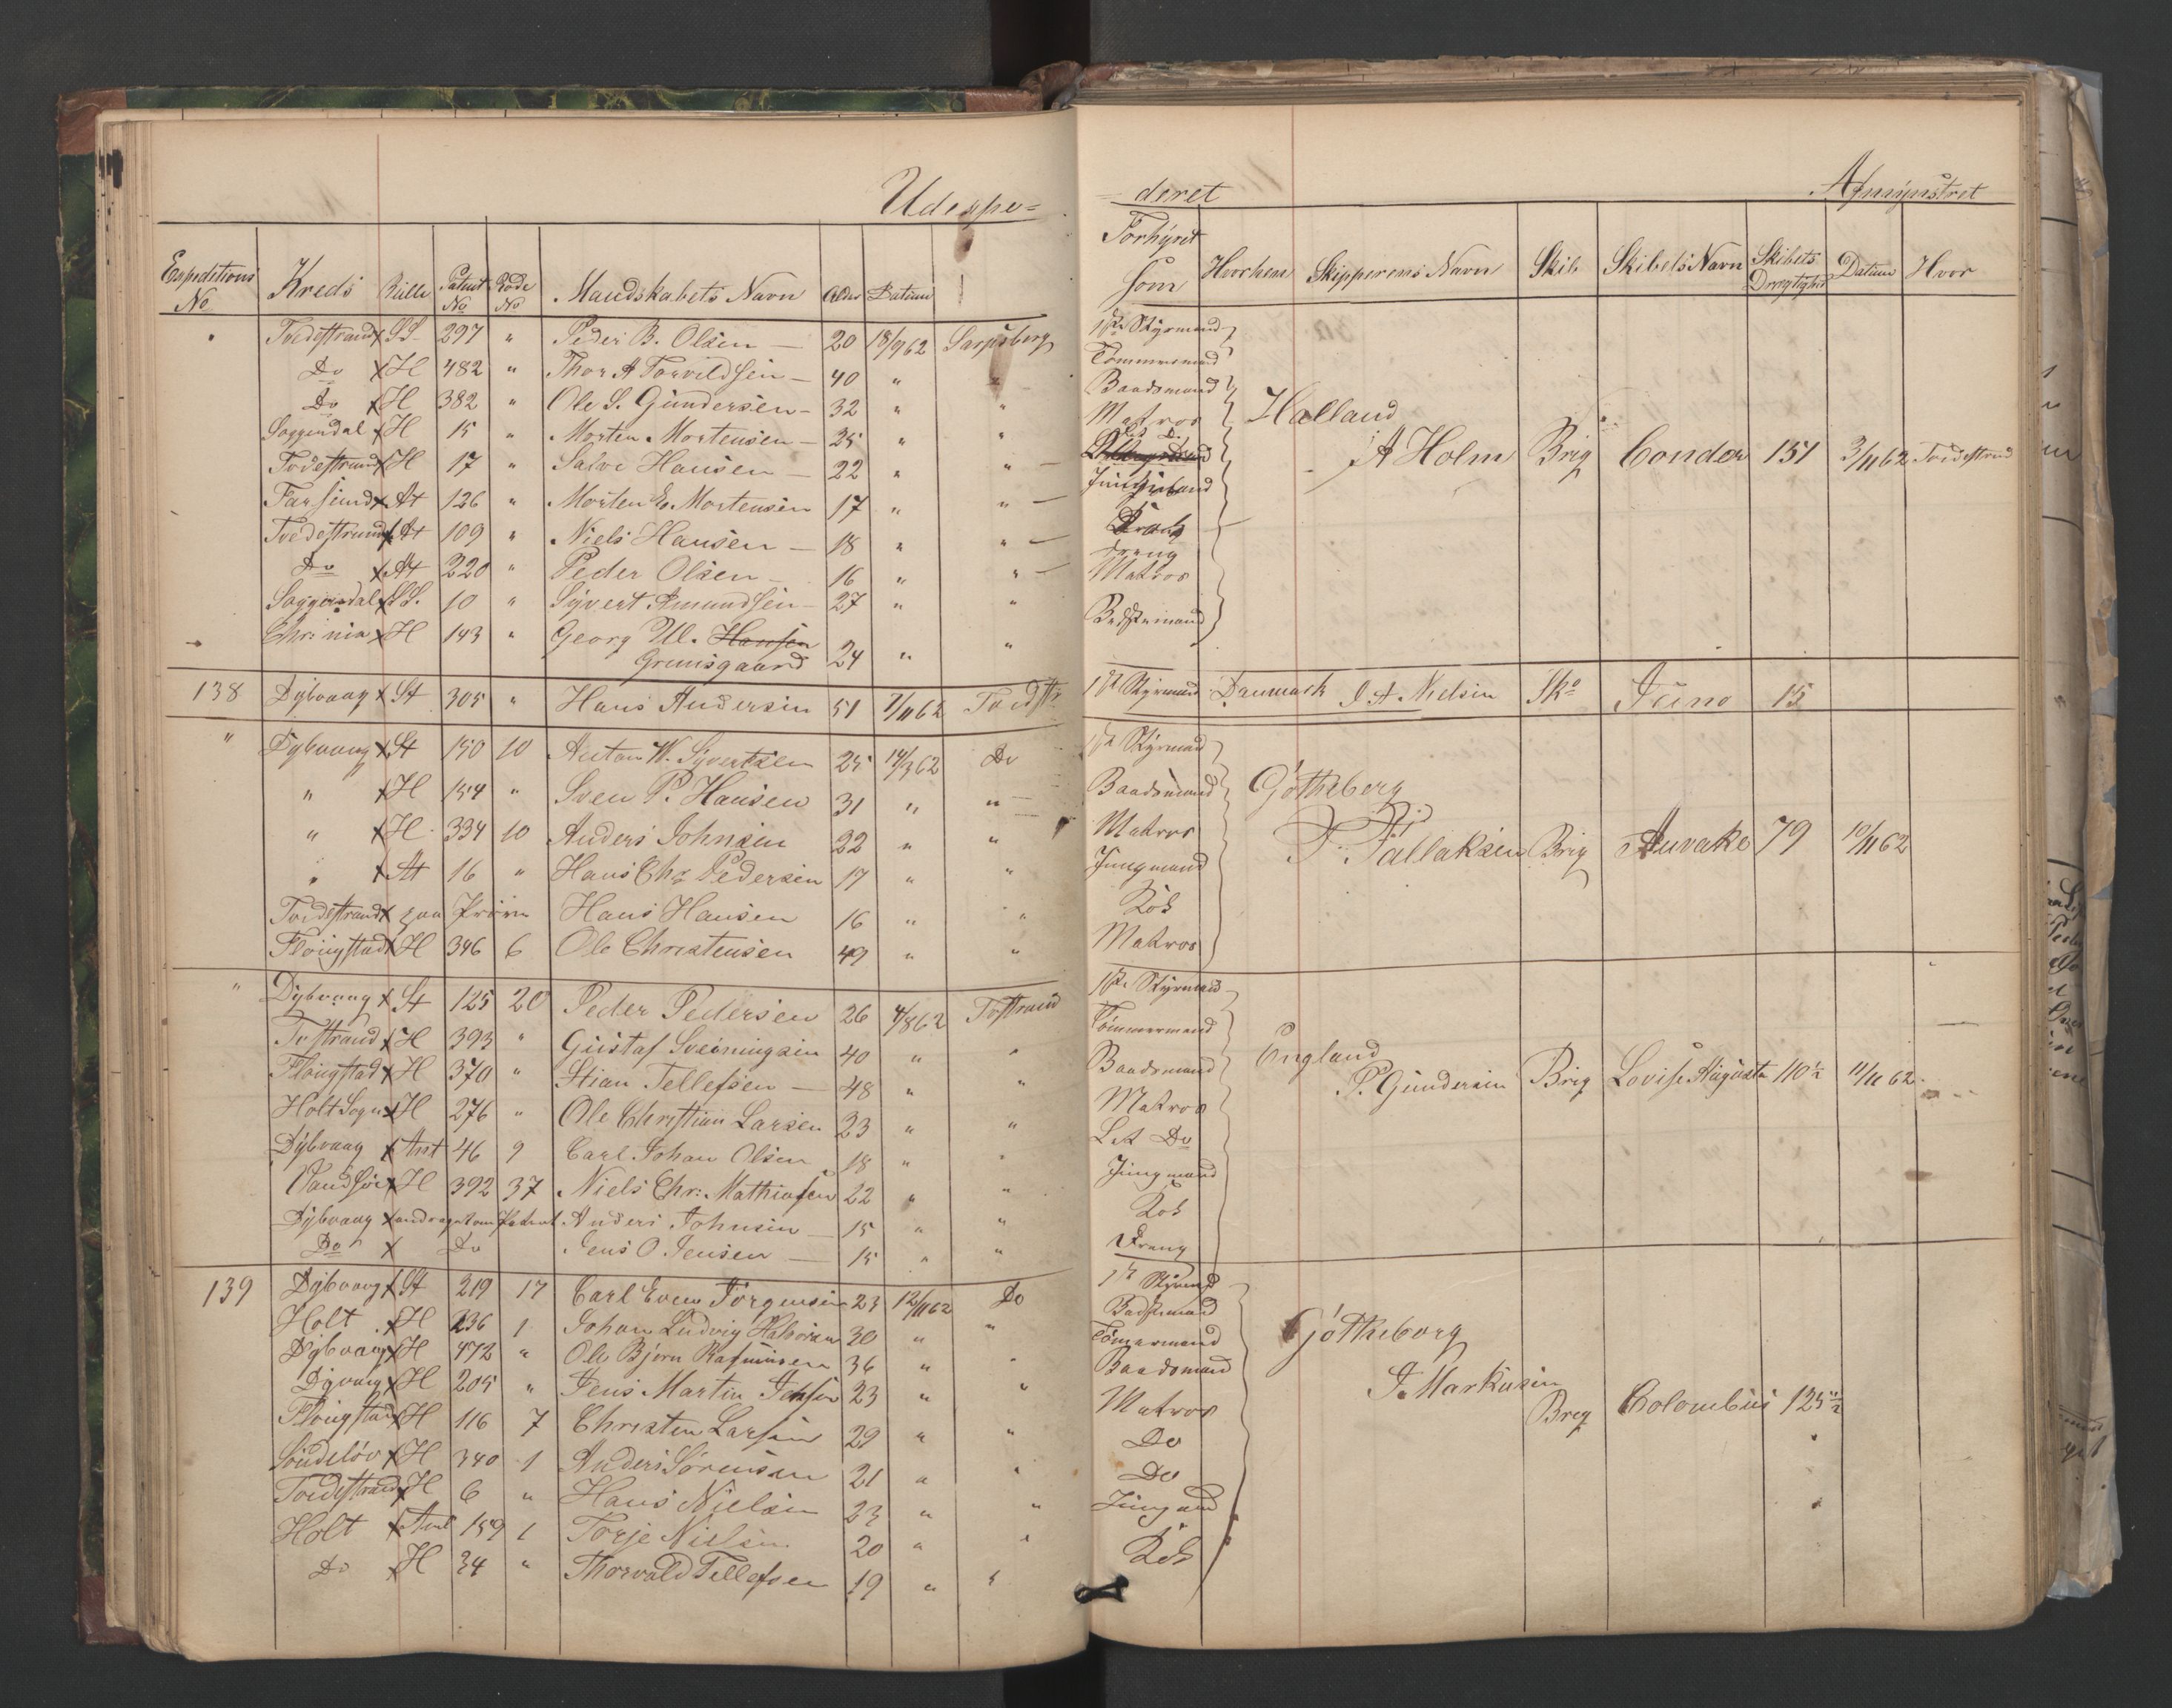 Udexpe=
Expeditions No Kreds Rulle Patent No Rode No Mandskabets Navn Alder Datum
" Tvedestrand x SS. 297 " Peder B. Olsen — 20 18/9 62 Sarpsborg
Do x H 482 " Thor A Torvildsen — 40 " "
Do x H 382 " Ole S. Gundersen — 32 " "
Soggendal x H 15 " Morten Mortensen — 25 " "
Tvedestrand x H 17 " Salve Hansen — 22 " " —
Farsund x At 126 " Morten E. Mortensen 17 " " —
Tvedestrand x At 109 " Niels Hansen — 18 " " —
Do x At 220 " Peder Olsen — 16 " " —
Soggendal x SS. 10 " Syvert Amundsen — 27 " "
Chr: nia x H 143 " Georg Ul. Hansen
Grumsgaard 24 " "
138 Dybvaag x St 305 " Hans Andersen 51 7/11 62 Tvedstr
" Dybvaag x St 150 10 Anton W. Syvertsen 25 14/3 62 Do
" x H 154 " Sven P. Hansen 31 " "
" x H 334 10 Anders Johnsen 22 " "
" x At 16 " Hans Chr Pedersen 17 " "
Tvedestrand x paa Prøve Hans Hansen 16 " "
Flougstad x H 346 6 Ole Christensen 49 " "
" Dybvaag x St 125 20 Peder Pedersen 26 4/8 62 Tvstrand
Tvstrand x H 393 " Gustaf Svenningsen 40 " "
Flougstad x H 370 " Stian Tellefsen — 48 " "
Holt Sogn x H 276 " Ole Christian Larsen 23 " "
Dybvaag x Ant 46 9 Carl Johan Olsen 18 " "
x H 392 37 Niels Chr: Mathiasen 22 " "
Dybvaag x andraget om Patent Anders Johnsen — 15 " "
Do x Do Jens O. Jensen — 15 " "
139 Dybvaag x St 219 17 Carl Even Jörgensen 23 12/11 62 Do
Holt x H 236 1 Johan Ludvig Halvorsen 30 " "
Dybvaag x H 472 " Ole Bjørn Rasmusen 36 " "
Dyvaag x H 205 " Jens Martin 23 " "
Flougstad x H 116 7 Christen Larsen 29 " "
Söndelöv x H 340 1 Anders Sørensen 21 " "
Tvedestrand x H 6 " Hans Nielsen 23 " "
Holt x Ant 159 1 Torje Nielsen 20 " "
Do x H 34 " Thorvald Tellefsen 19 " "
=deret
Afmynstret
Forhyret som Hvorhen Skipperens Navn Skib Skibets Navn Skibets Drægtighed Datum Hvor
1ste Styrmand
Tømmermand
Baadsmand
Matros Halland
Let Do
A Holm Brig Condor 151 3/11 62 Tvedestrand
Jungmand
Kok
Dreng
Matros
Bedstemand
1ste Styrmand Danmark O A Nielsen Sko Juno 15
1ste Styrmad
Baadsmand Gøtheborg
Matros T. Tallaksen Brig Anvake 79 10/11 62
Jungmand
Kok
Matros
1ste Styrmand
Tömmermand
Baadsmand England
P. Gundersen Brig Lovise Augusta 110½ 11/11 62
Matros
Let Do
Jungmand
Kok
Dreng
1ste Styrmd
Badstemand
Tømermand Gøtheborg
Baadsmand
Matros J. Markusen Brig Colombus 125½
Do
Do
Jungmd
Kok